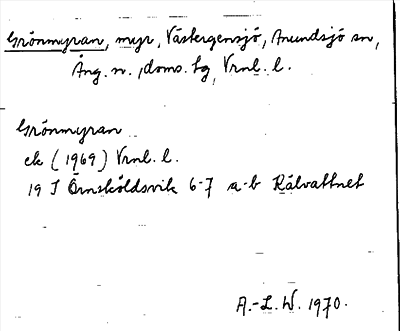 Grönmyran, myr, Västergensjö, Anundsjö sn,
Ång. n., doms. lg, Vrnl. l.
Grönmyran
ek (1969) Vrnl. l.
19 J Örnsköldsvik 6-7 a-b Kälvattnet
A.-L. W. 1970.